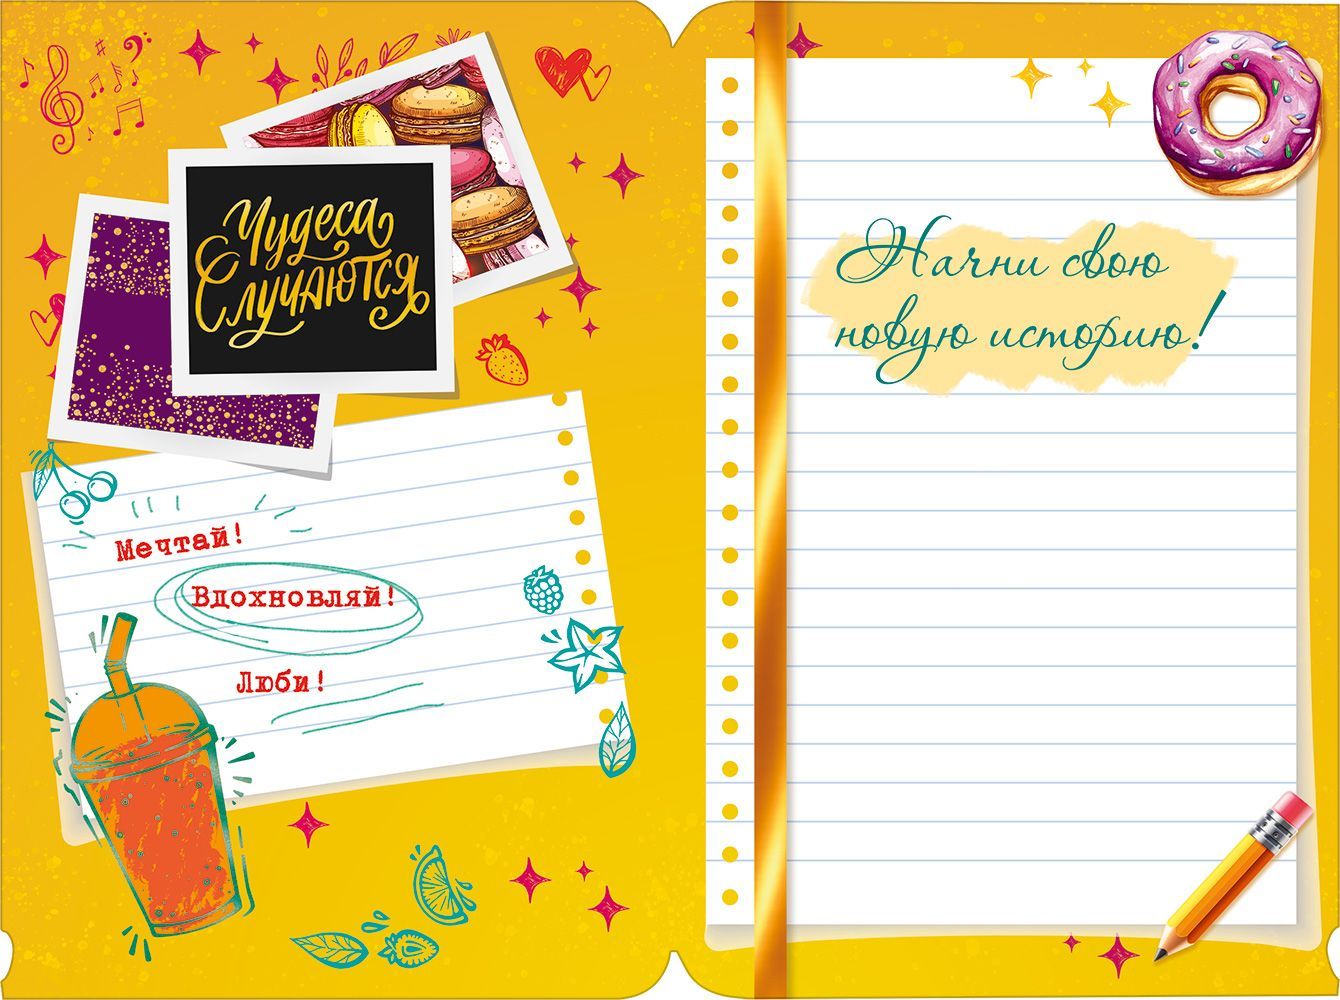 Чудеса
Случаются
Мечтай!
Вдохновляй!
Люби!
Начни свою
новую историю!